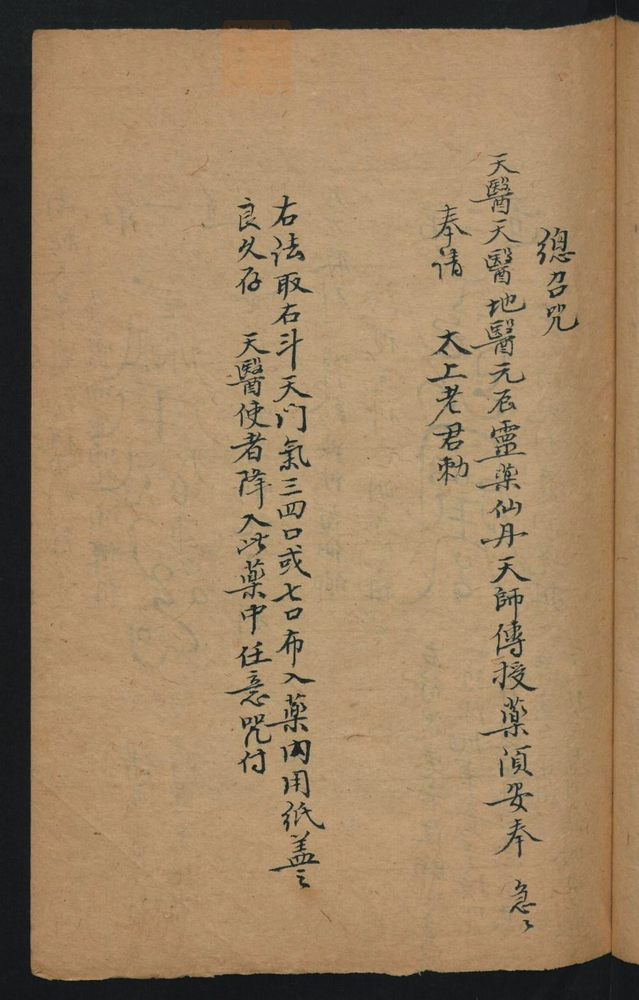 總召咒
天醫天醫地醫元辰靈藥仙丹天師傳授藥須安奉 急〻
奉请 太上老君勅
右法取右斗天门氣三四口或七口布入藥內用纸盖〻
良久存 天醫使者降入此藥中任意咒付